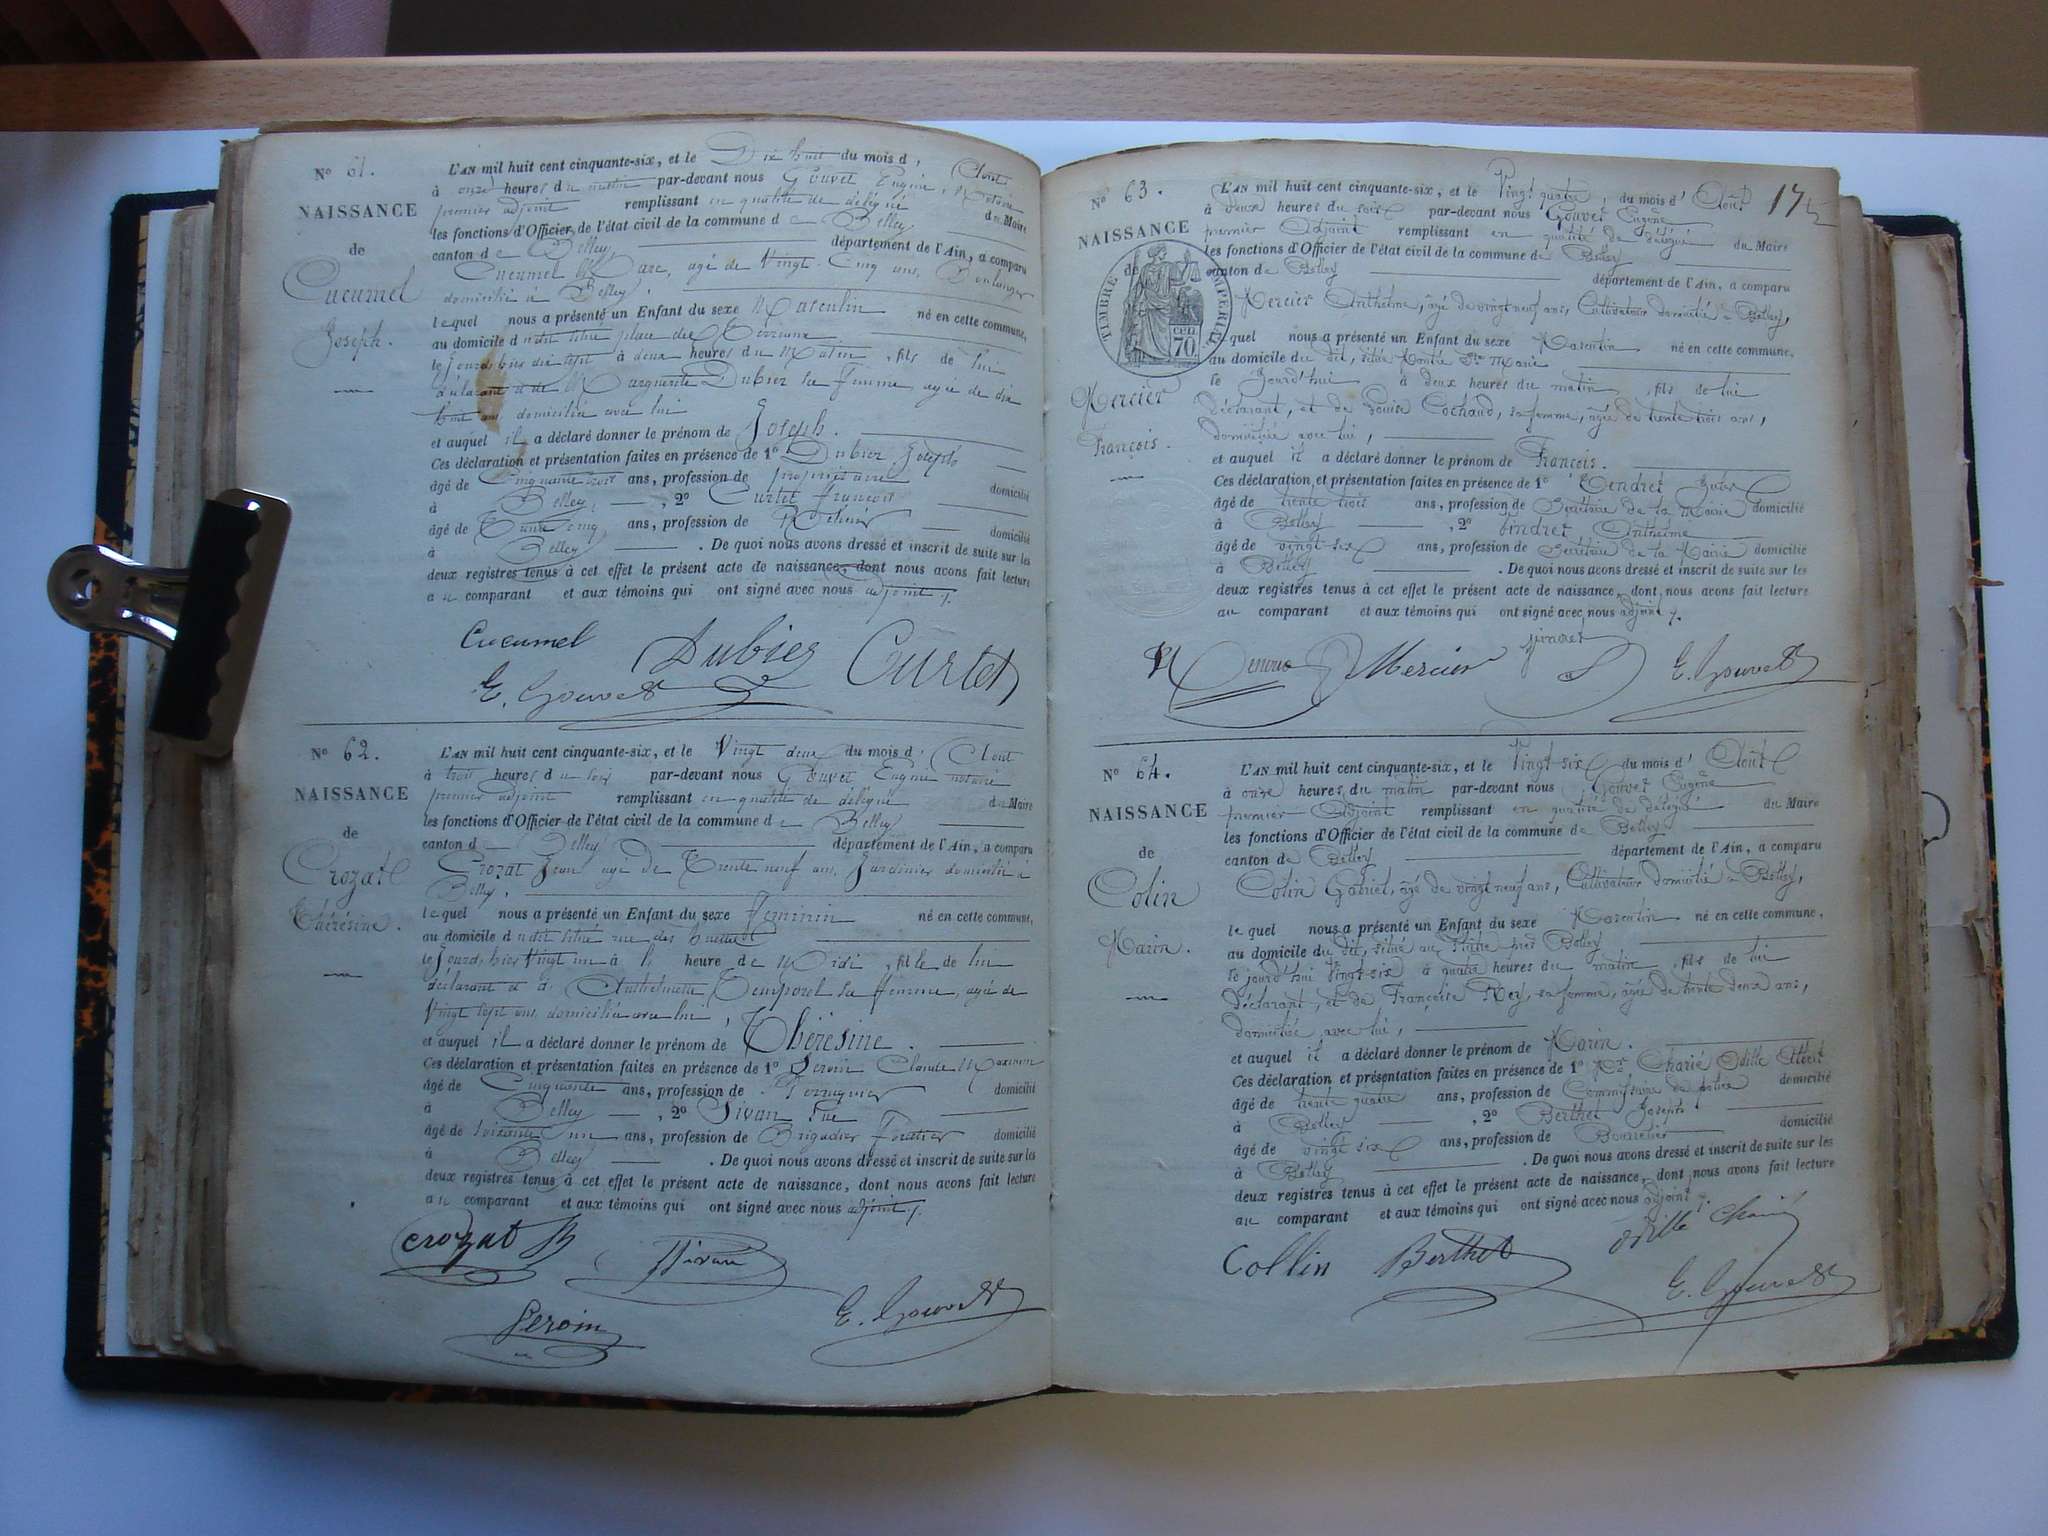 N° 61.
NAISSANCE
de
Cucumel
Joseph.
L'AN mil huit cent cinquante-six, et le Dix huit du mois d' Août
à onze heures du matin par-devant nous Gouvet Eugène, Notaire
premier adjoint remplissant en qualité de délégué du Maire
les fonctions d'Officier de l'état civil de la commune de Belley
canton de Belley département de l'Ain, a comparu
Cucumel Marc, agé de Vingt-Cinq ans, Boulanger
domicilié à Belley,
lequel nous a présenté un Enfant du sexe Masculin né en cette commune,
au domicile dudit situé place des Terreaux
le Jourd'hier dix sept à deux heures du Matin, fils de lui
déclarant et de Marguerite Dubier sa femme, agée de dix
huit ans, domiciliée avec lui
et auquel il a déclaré donner le prénom de Joseph.
Ces déclaration et présentation faites en présence de 1° Dubier Joseph
âgé de Cinquante trois ans, profession de propriétaire domicilié
à Belley, 2° Curtet François
âgé de Trente cinq ans, profession de domicilié
à Belley. De quoi nous avons dressé et inscrit de suite sur les
deux registres tenus à cet effet le présent acte de naissance, dont nous avons fait lecture
au comparant et aux témoins qui ont signé avec nous adjoint.
Cucumel Dubier Curtet
E. Gouvet
N° 62.
NAISSANCE
de
Crozat
Thérésine.
L'AN mil huit cent cinquante-six, et le Vingt deux du mois d' Août
à trois heures du soir par-devant nous Gouvet Eugène notaire
premier adjoint remplissant en qualité de délégué du Maire
les fonctions d'Officier de l'état civil de la commune de Belley
canton de Belley département de l'Ain, a comparu
Crozat Jean agé de Trente neuf ans, Jardinier domicilié à
Belley,
lequel nous a présenté un Enfant du sexe Feminin né en cette commune,
au domicile dudit situé rue des
le Jourd'hier Vingt un à heure de Midi, fille de lui
déclarant et d' Anthelmette Temporel sa femme, agée de
Vingt sept ans, domiciliée avec lui,
et auquel il a déclaré donner le prénom de Thérésine.
Ces déclaration et présentation faites en présence de 1° Peroin Claude Maximin
âgé de Cinquante ans, profession de Perruquier domicilié
à Belley, 2° Sivan
âgé de soixante un ans, profession de Brigadier Forestier domicilié
à Belley. De quoi nous avons dressé et inscrit de suite sur les
deux registres tenus à cet effet le présent acte de naissance, dont nous avons fait lecture
au comparant et aux témoins qui ont signé avec nous adjoint.
Crozat Sivan
Peroin E. Gouvet
17
N° 63.
NAISSANCE
de
TIMBRE IMPERIAL
70 cen
Mercier
François.
L'AN mil huit cent cinquante-six, et le Vingt quatre, du mois d' Août
à deux heures du soir par-devant nous Gouvet Eugène
premier Adjoint remplissant en qualité de délégué du Maire
les fonctions d'Officier de l'état civil de la commune de Belley
canton de Belley département de l'Ain, a comparu
Mercier Anthelme, âgé de vingt neuf ans, Cultivateur domicilié à Belley,
lequel nous a présenté un Enfant du sexe Masculin né en cette commune,
au domicile du dit, situé Montée Ste Marie
le Jourd'hui à deux heures du matin, fils de lui
déclarant, et de Louise Cochaud, sa femme, âgée de trente trois ans,
domiciliée avec lui,
et auquel il a déclaré donner le prénom de François.
Ces déclaration et présentation faites en présence de 1°
âgé de trente trois ans, profession de Secrétaire de la Mairie domicilié
à Belley, 2° Pindret Anthelme
âgé de vingt six ans, profession de Secrétaire de la Mairie domicilié
à Belley. De quoi nous avons dressé et inscrit de suite sur les
deux registres tenus à cet effet le présent acte de naissance, dont nous avons fait lecture
au comparant et aux témoins qui ont signé avec nous adjoint.
Mercier pindret E. Gouvet
N° 64.
NAISSANCE
de
Colin
Marin.
L'AN mil huit cent cinquante-six, et le Vingt-six du mois d' Août
à onze heures du matin par-devant nous Gouvet Eugène
premier Adjoint remplissant en qualité de délégué du Maire
les fonctions d'Officier de l'état civil de la commune de Belley
canton de Belley département de l'Ain, a comparu
Colin Gabriel, âgé de vingt neuf ans, Cultivateur domicilié à Belley,
lequel nous a présenté un Enfant du sexe Masculin né en cette commune,
au domicile du dit, situé au près Belley
le jourd'hui Vingt-six à quatre heures du matin, fils de lui
déclarant, et de Françoise Rey, sa femme, âgée de trente deux ans,
domiciliée avec lui,
et auquel il a déclaré donner le prénom de Marin.
Ces déclaration et présentation faites en présence de 1° Mr Charié Odille
âgé de trente quatre ans, profession de Commissaire de police domicilié
à Belley, 2° Berthet Joseph
âgé de vingt six ans, profession de Bourrelier domicilié
à Belley. De quoi nous avons dressé et inscrit de suite sur les
deux registres tenus à cet effet le présent acte de naissance, dont nous avons fait lecture
au comparant et aux témoins qui ont signé avec nous adjoint
Collin Berthet Odille Charié
E. Gouvet